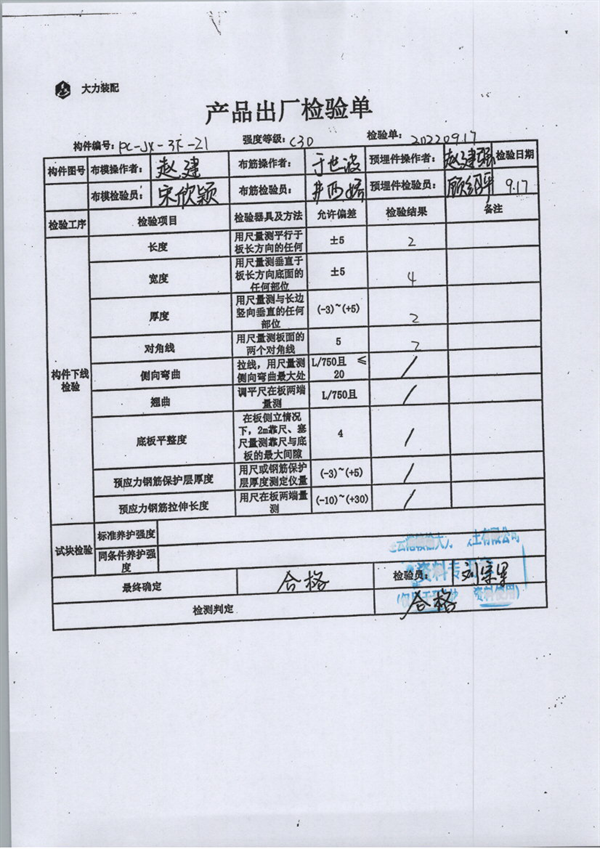 大力装配
产品出厂检验单
构件编号: PC-JX-3F-21 强度等级: C30 检验单: 20220917
构件图号 布模操作者: 赵建 布筋操作者: 于世波 预埋件操作者: 赵建强 检验日期
布模检验员: 宋欣颖 布筋检验员: 预埋件检验员: 9.17
检验工序 检验项目 检验器具及方法 允许偏差 检验结果 备注
构件下线检验
长度 用尺量测平行于板长方向的任何 ±5 2
宽度 用尺量测垂直于板长方向底面的任何部位 ±5 4
厚度 用尺量测与长边竖向垂直的任何部位 (-3)~(+5) 2
对角线 用尺量测板面的两个对角线 5 2
侧向弯曲 拉线,用尺量测侧向弯曲最大处 L/750且 ≤ 20 /
翘曲 调平尺在板两端量测 L/750且 /
底板平整度 在板侧立情况下,2m靠尺、塞尺量测靠尺与底板的最大间隙 4 /
预应力钢筋保护层厚度 用尺或钢筋保护层厚度测定仪量 (-3)~(+5) /
预应力钢筋拉伸长度 用尺在板两端量测 (-10)~(+30) /
试块检验 标准养护强度
同条件养护强度
土有限公司
资料专
最终确定 合格 检验员:
资料使用)
检测判定 合格